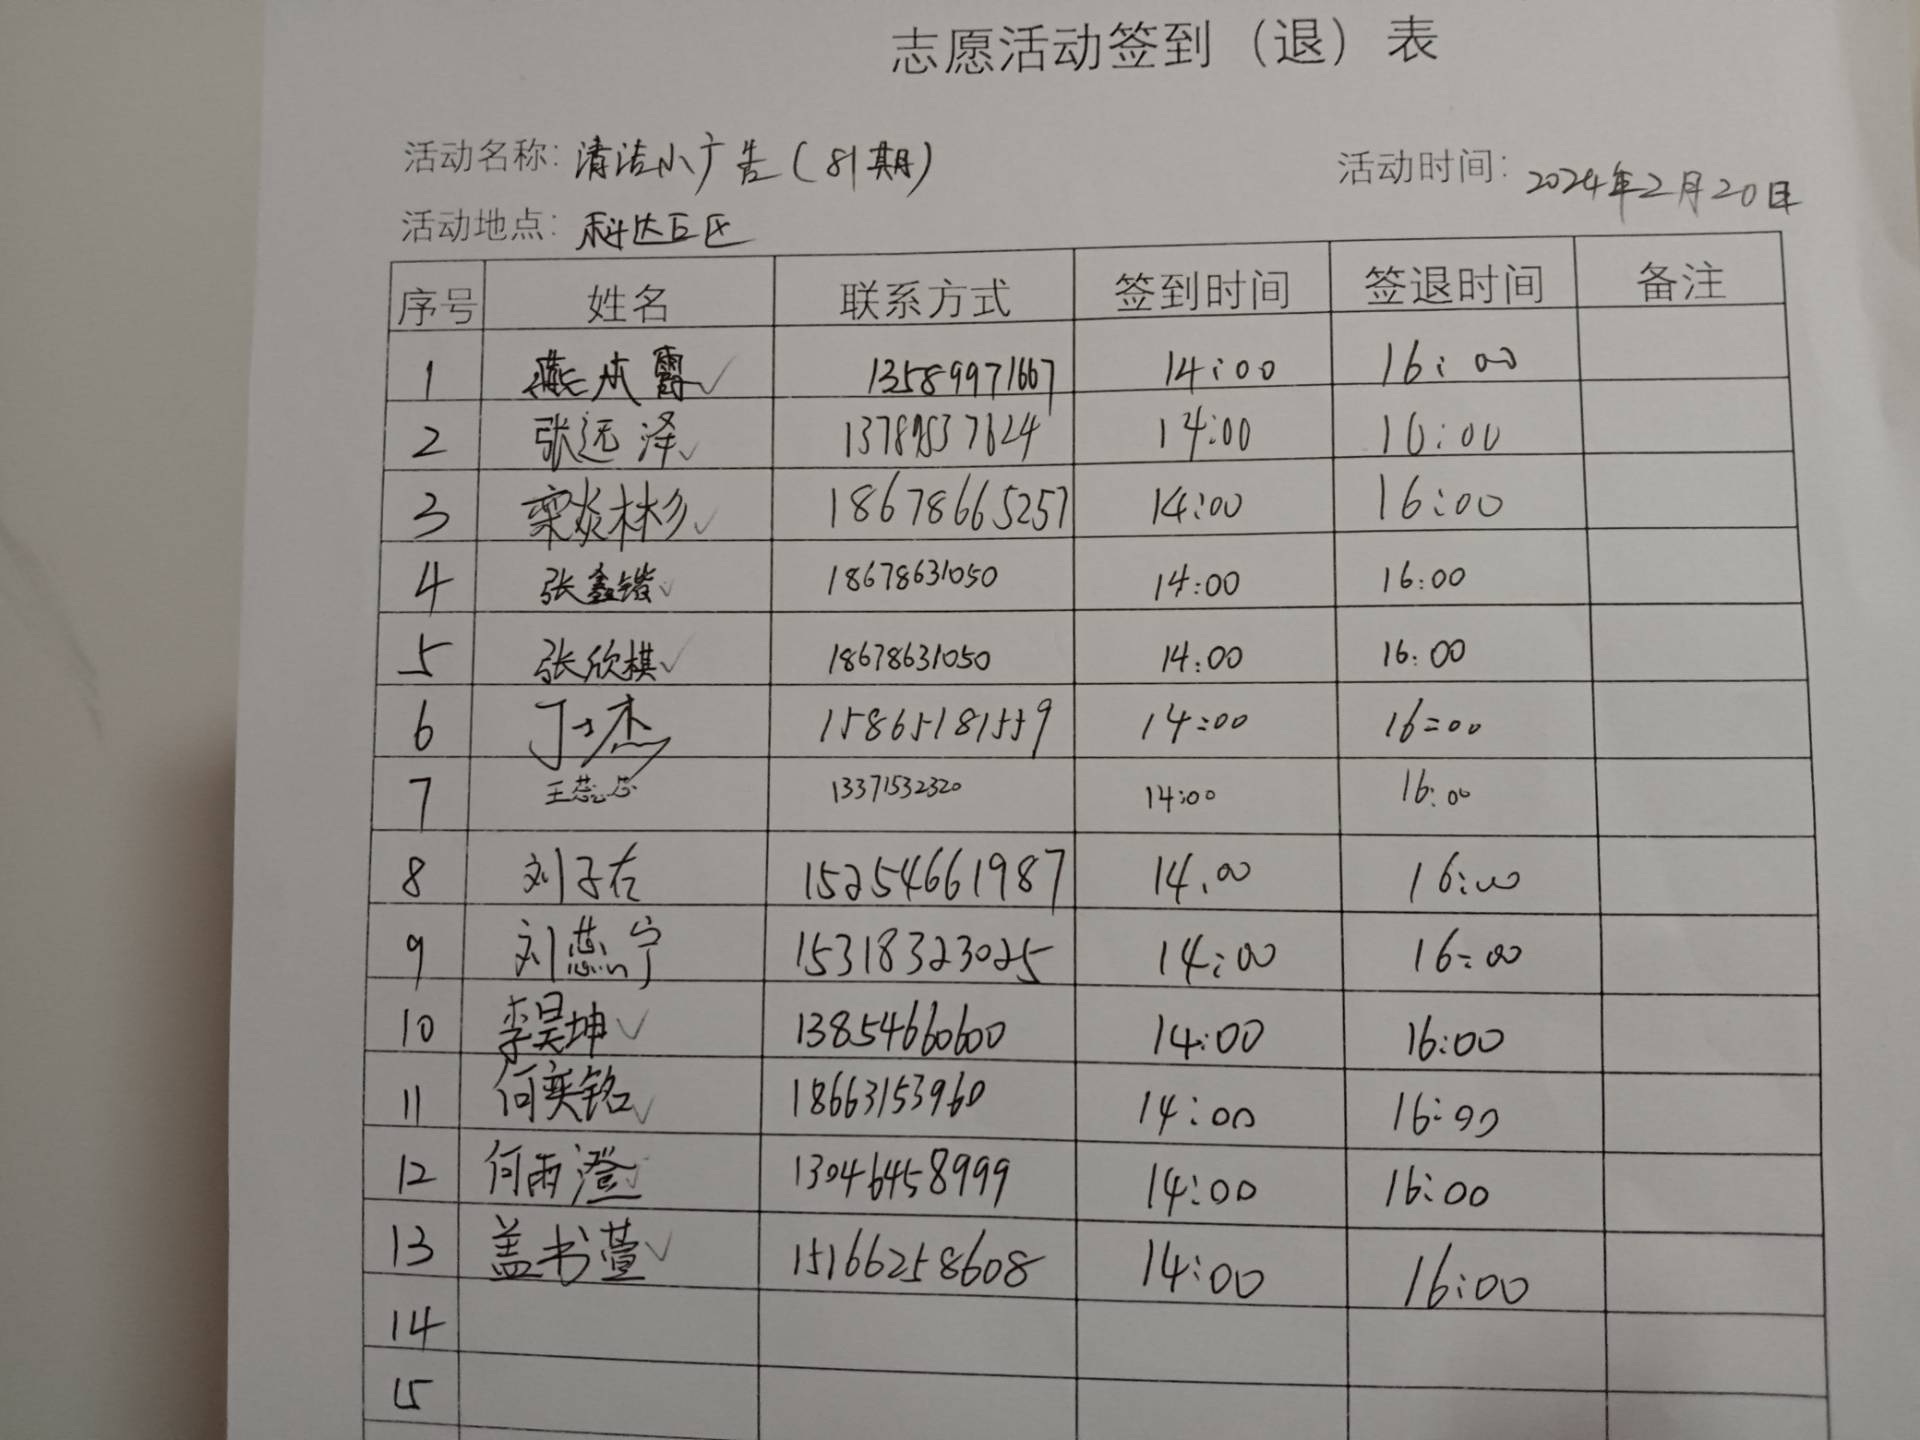 志愿活动签到（退）表
活动名称: 清洁小广告(81期) 活动时间: 2024年2月20日
活动地点: 科达E区
序号 姓名 联系方式 签到时间 签退时间 备注
1 燕本霨 13589971667 14:00 16:00
2 张远泽 14:00 16:00
3 栾焱彬 18678665257 14:00 16:00
4 张鑫锴 18678631050 14:00 16:00
5 张欣棋 18678631050 14:00 16:00
6 丁杰 15865181559 14:00 16:00
7 王蕊芯 13371532320 14:00 16:00
8 刘子右 15254661987 14:00 16:00
9 刘蕊宁 15318323025 14:00 16:00
10 李昊坤 13854660600 14:00 16:00
11 何奕铭 18663153960 14:00 16:00
12 何雨澄 13046458999 14:00 16:00
13 盖书萱 15166258608 14:00 16:00
14
15